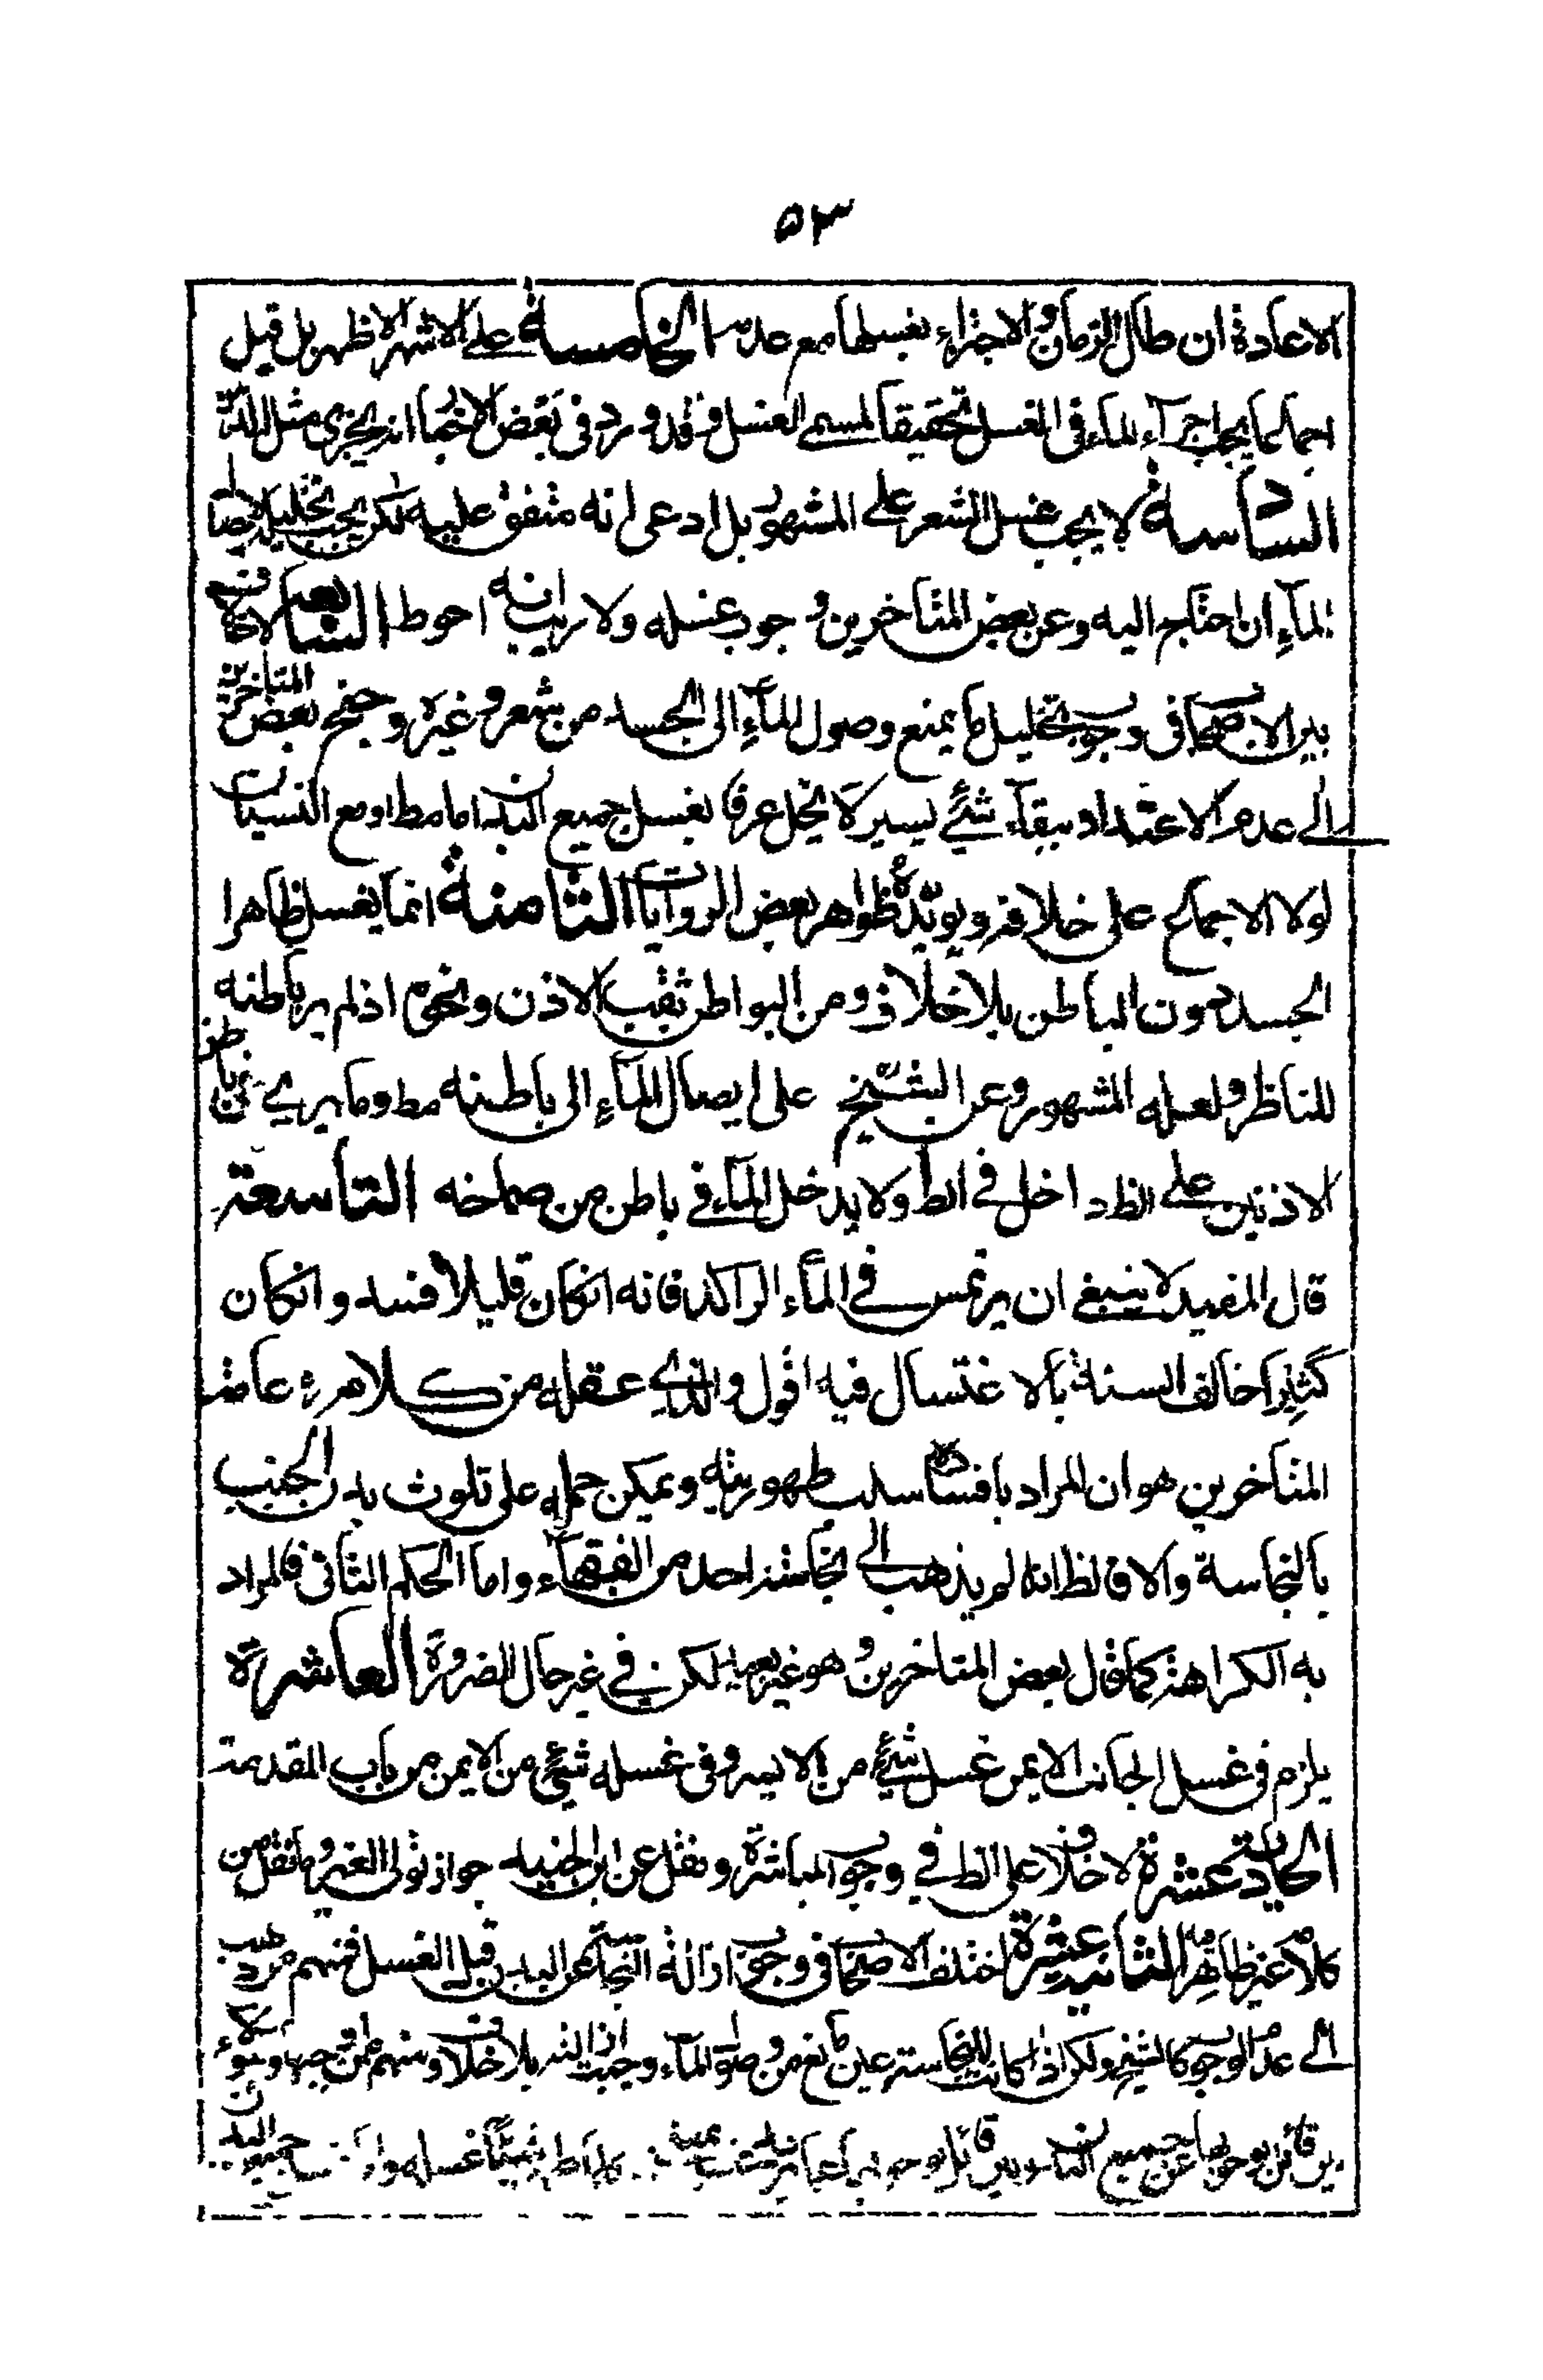 ٥٣
الاعادة ان طال الزمان والاجزاء بغسلها مع عدمه الخامسة على الاشهر الاظهر بل قيل
اجماعا يجب اجرآء المآء فى الغسل تحقيقا لمسمى الغسل وقد ورد فى بعض الاخبار انه يجزى مثل الدهن
السادسة لا يجب غسل الشعر على المشهور بل ادعى انه متفق عليه لكن يجب تخليله لايصال
المآء ان احتاج اليه وعن بعض المتاخرين وجوب غسله ولا ريب انه احوط السابعة لا خلاف
بين الاصحاب فى وجوب تخليل ما يمنع وصول المآء الى الجسد من شعر وغيره وجنح بعض المتاخرين
الى عدم الاعتداد ببقآء شئ يسير لا يخل عرفا بغسل جميع البدن اما مط او مع النسيان
لولا الاجماع على خلافه ويؤيده ظواهر بعض الروايات الثامنة انما يغسل ظاهرا
الجسد دون الباطن بلا خلاف ومن البواطن ثقب الاذن ونحوه اذ لم ير باطنه
للناظر ولعله المشهور وعن الشيخ على ايصال المآء الى باطنه مط وما يرى من باطن
الاذنين على الظ داخل فى الظ ولا يدخل المآء فى باطن من صماخه التاسعة
قال المفيد لا ينبغى ان يرتمس فى المآء الراكد فانه انكان قليلا افسد وانكان
كثيرا خالف السنة بالاغتسال فيه اقول والذى عقله من كلامه عامة
المتاخرين هو ان المراد بافساده سلب طهوريته ويمكن حمله على تلوث بدن الجنب
بالنجاسة والا فالظ انه لم يذهب الى نجاسته احد من الفقهآء واما الحكم الثانى فالمراد
به الكراهة كما قال بعض المتاخرين وهو غير بعيد لكن فى غير حال الضرورة العاشرة
يلزم فى غسل الجانب الايمن غسل شئ من الايسر وفى غسله شئ من الايمن من باب المقدمة
الحادية عشرة لا خلاف على الظ فى وجوب المباشرة ونقل عن ابن الجنيد جواز تولى الغير وما نقل من
كلامه غير ظاهر الثانية عشرة اختلف الاصحاب فى وجوب ازالة النجاسة عن البدن قبل الغسل فمنهم من ذهب
الى عدم الوجوب كالشيخ ولكن اذا كانت للنجاسة عين مانع من وصول المآء وجبت ازالته بلا خلاف ومنهم من اوجبه وهؤلاء
بين قائل بوجوبها عن جميع البدن وبين قائل بوجوبه شيئا غسله